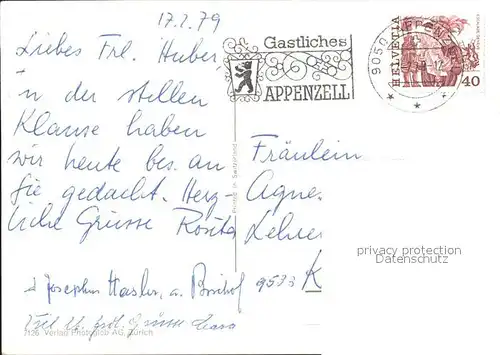 17.2.79
Liebes Frl. Huber
in der stillen
Klause haben
wir heute bes. an
Sie gedacht. Herz-
liche Grüsse Rosita
Josephin Hasler
9533 K
Viel
7126 Verlag Photoglob AG, Zürich
Printed in Switzerland
Gastliches
APPENZELL
9050 APPENZELL
HELVETIA
40
Fräulein
Agnes
privacy protection
Datenschutz